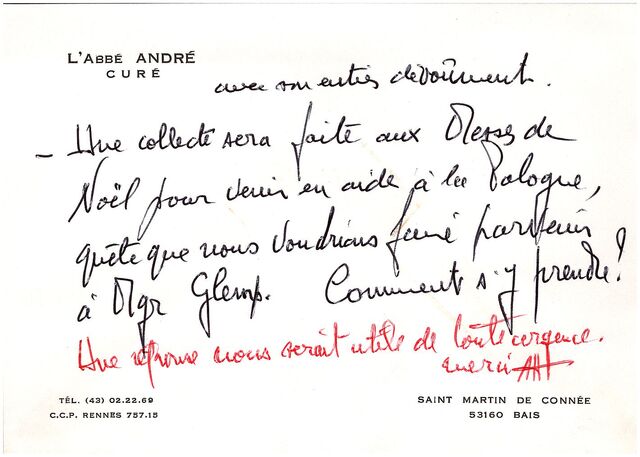 L'ABBÉ ANDRÉ
CURÉ
avec son entier dévoûment.
- Une collecte sera faite aux Messes de
Noël pour venir en aide à la Pologne,
quête que nous voudrions faire parvenir
à Mgr Glemp. Comment s'y prendre?
Une réponse nous serait utile de toute urgence.
merci
TÉL. (43) 02.22.69
C.C.P. RENNES 757.15
SAINT MARTIN DE CONNÉE
53160 BAIS